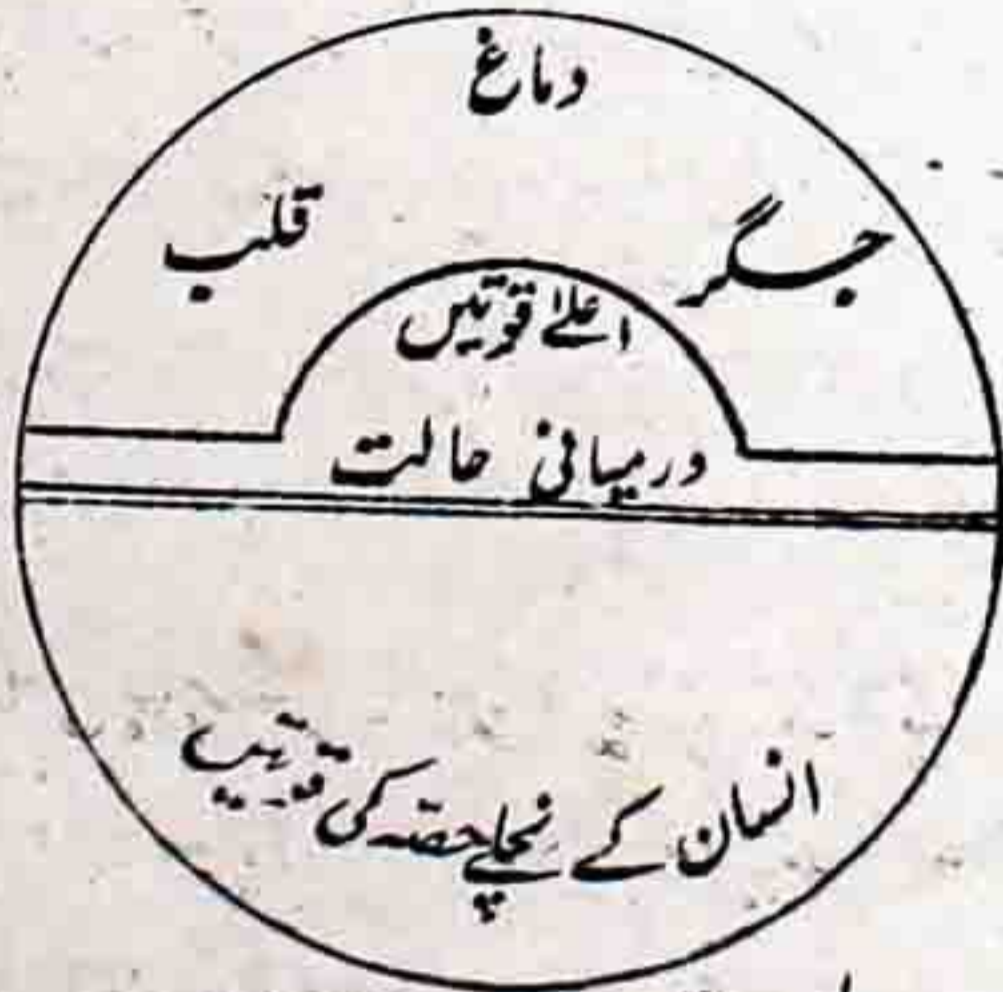 دماغ
جگر
قلب
اعلےٰ قوتیں
درمیانی حالت
انسان کے نچلے حصہ کی قوتیں